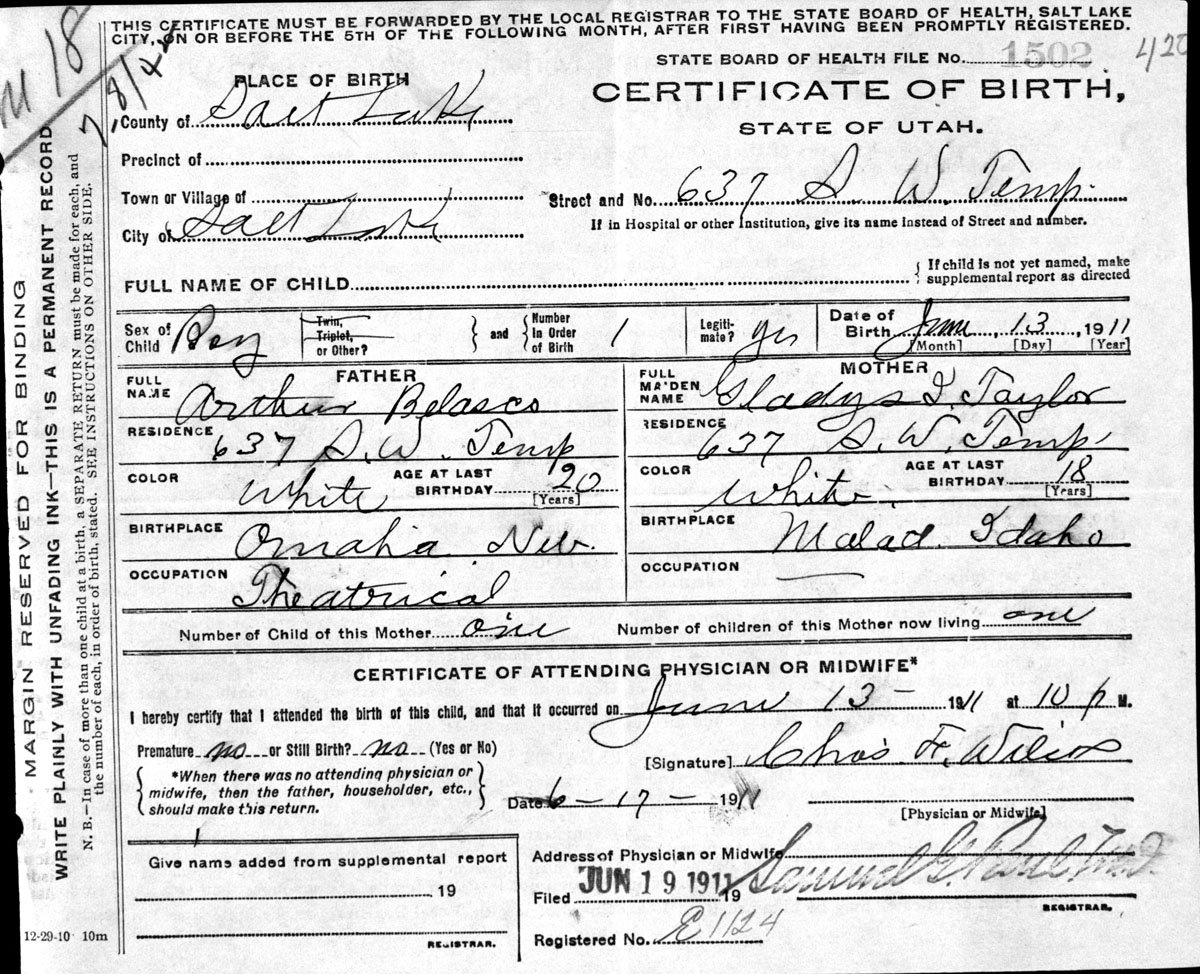 THIS CERTIFICATE MUST BE FORWARDED BY THE LOCAL REGISTRAR TO THE STATE BOARD OF HEALTH, SALT LAKE
CITY, ON OR BEFORE THE 5TH OF THE FOLLOWING MONTH, AFTER FIRST HAVING BEEN PROMPTLY REGISTERED.
STATE BOARD OF HEALTH FILE NO. 1502
420
CERTIFICATE OF BIRTH,
STATE OF UTAH.
PLACE OF BIRTH
County of Salt Lake
Precinct of
Town or Village of
City of Salt Lake
Street and No. 637 S. W. Temp.
If in Hospital or other Institution, give its name instead of Street and number.
FULL NAME OF CHILD
{ If child is not yet named, make
supplemental report as directed
Sex of Child Boy
Twin, Triplet, or Other?
} and { Number In Order of Birth 1
Legiti-mate? yes
Date of Birth June 13, 1911
[Month] [Day] [Year]
FATHER
FULL NAME Arthur Belasco
RESIDENCE 637 S. W. Temp
COLOR White AGE AT LAST BIRTHDAY 20 [Years]
BIRTHPLACE Omaha Neb.
OCCUPATION Theatrical
MOTHER
FULL MAIDEN NAME Gladys I. Taylor
RESIDENCE 637 S. W. Temp.
COLOR White AGE AT LAST BIRTHDAY 18 [Years]
BIRTHPLACE Malad Idaho
OCCUPATION
Number of Child of this Mother one Number of children of this Mother now living one
CERTIFICATE OF ATTENDING PHYSICIAN OR MIDWIFE*
I hereby certify that I attended the birth of this child, and that it occurred on June 13- 1911 at 10 p M.
Premature no or Still Birth? no (Yes or No)
{ *When there was no attending physician or
midwife, then the father, householder, etc.,
should make this return. }
[Signature] Chas F. Wilcox
Date 6-17- 1911
[Physician or Midwife]
Give name added from supplemental report
19
REGISTRAR.
Address of Physician or Midwife
Filed JUN 19 1911 19 Samuel G. Paul M.D.
REGISTRAR.
Registered No. E1124
12-29-10 10m
MARGIN RESERVED FOR BINDING
WRITE PLAINLY WITH UNFADING INK—THIS IS A PERMANENT RECORD
N. B.—In case of more than one child at a birth, a SEPARATE RETURN must be made for each, and
the number of each, in order of birth, stated. SEE INSTRUCTIONS ON OTHER SIDE.